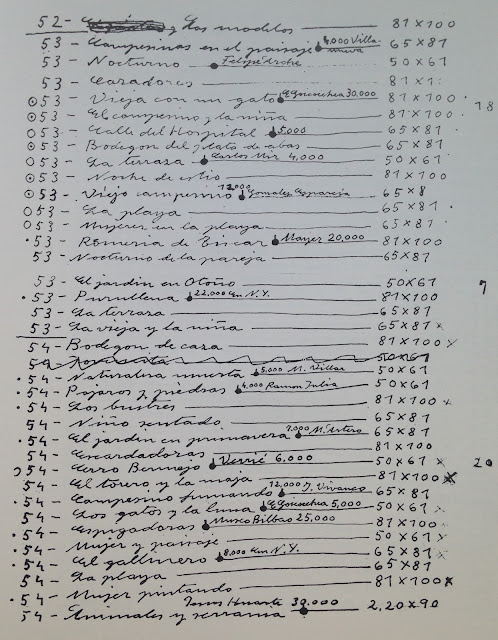 52 - y Los modelos 81x100
53 - Campesinas en el paisaje 4,000 Villanueva 65x81
53 - Nocturno Felipe 50x61
53 - Cazadores 81x1
53 - Vieja con un gato Goicoechea 30.000 81x100 18
53 - El campesino y la niña 81x100
53 - Calle del Hospital 5,000 65x81
53 - Bodegon del plato de abas 65x81
53 - La terraza Carlos Mir 4,000 50x61
53 - Noche de estio 81x100
53 - Viejo campesino 12.000 Gonzalez 65x8
53 - La playa 65x81
53 - Mujeres en la playa 65x81
53 - Romeria de Biscar Mayer 20,000 81x100
53 - Nocturno de la pareja 65x81
53 - El jardin en Otoño 50x61 7
53 - Purullena 22.000 en N.Y. 81x100
53 - La terraza 65x81
53 - La vieja y la niña 65x81x
54 - Bodegon de caza 81x100x
54 - 50x61
54 - Naturaleza muerta 5.000 M. Villar 50x61
54 - Pajaros y piedras 4,000 Ramon Julia 50x61
54 - Los buitres 81x100x
54 - Niño sentado 65x81
54 - El jardin en primavera 7.000 M. Artero 65x81
54 - Escardadoras 81x100
54 - Cerro Bermejo Verrié 6.000 50x61 x 20
54 - El torero y la maja 81x100x
54 - Campesino fumando 12,000 J. Vivanco 65x81
54 - Los gatos y la luna Goicoechea 5,000 50x61 x
54 - Espigadoras Museo Bilbao 25,000 81x100
54 - Mujer y paisaje 50x61 x
54 - El gallinero 8,000 en N.Y. 65x81 x
54 - La playa 65x81
54 - Mujer pintando 81x100x
54 - Animales y serrania Huarte 30.000 2,20x90